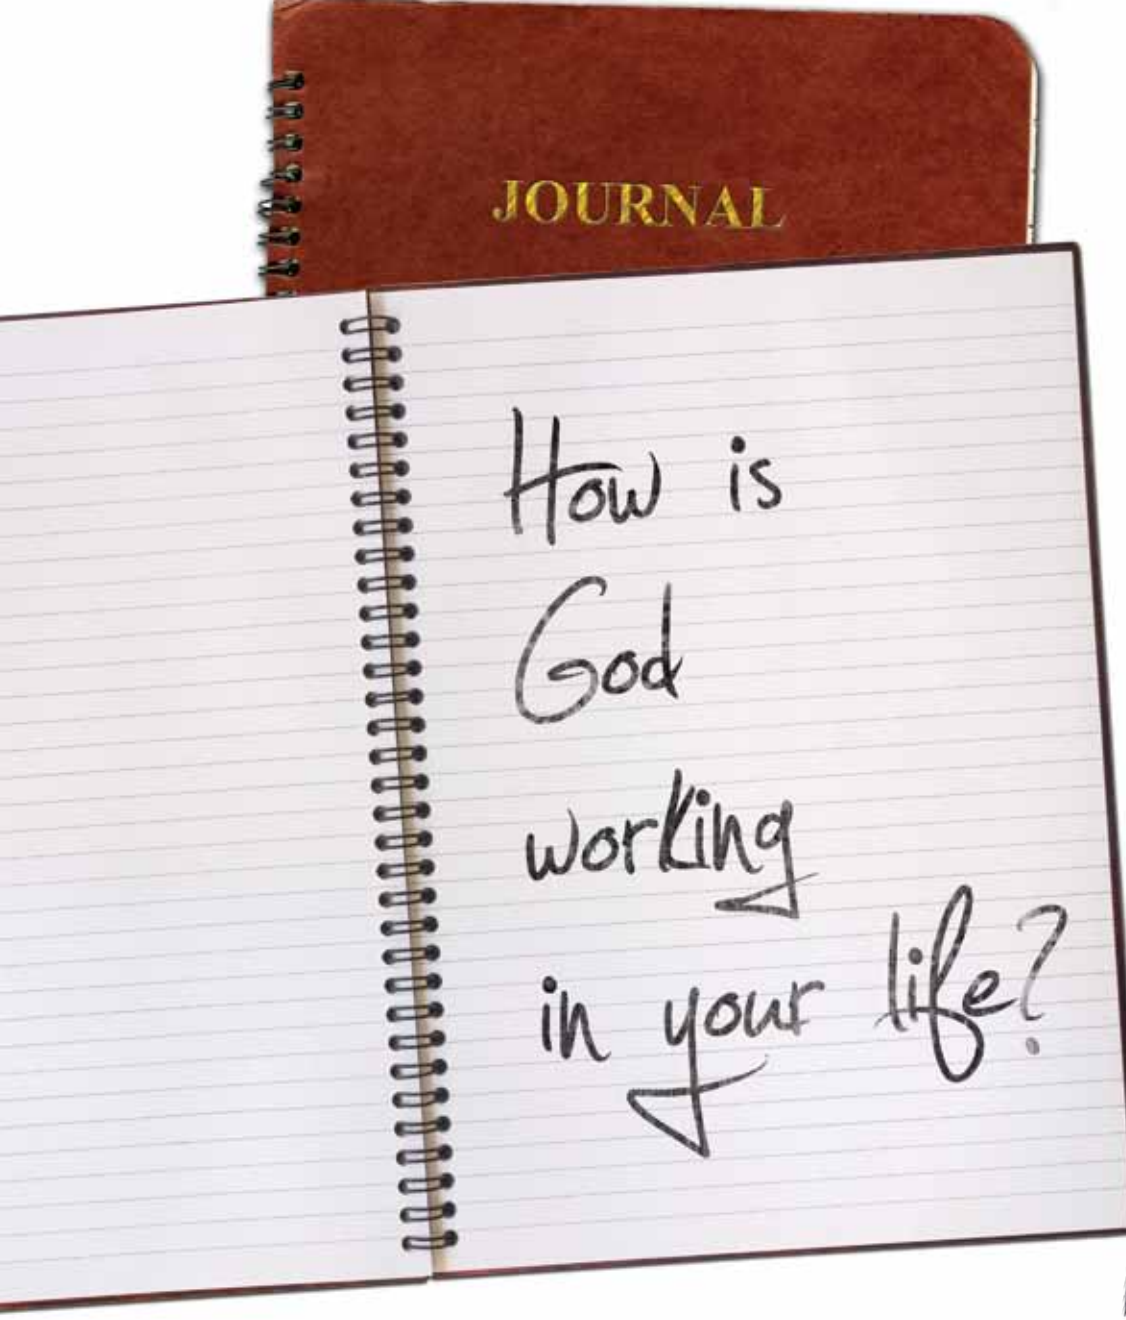 JOURNAL
How is
God
working
in your life?